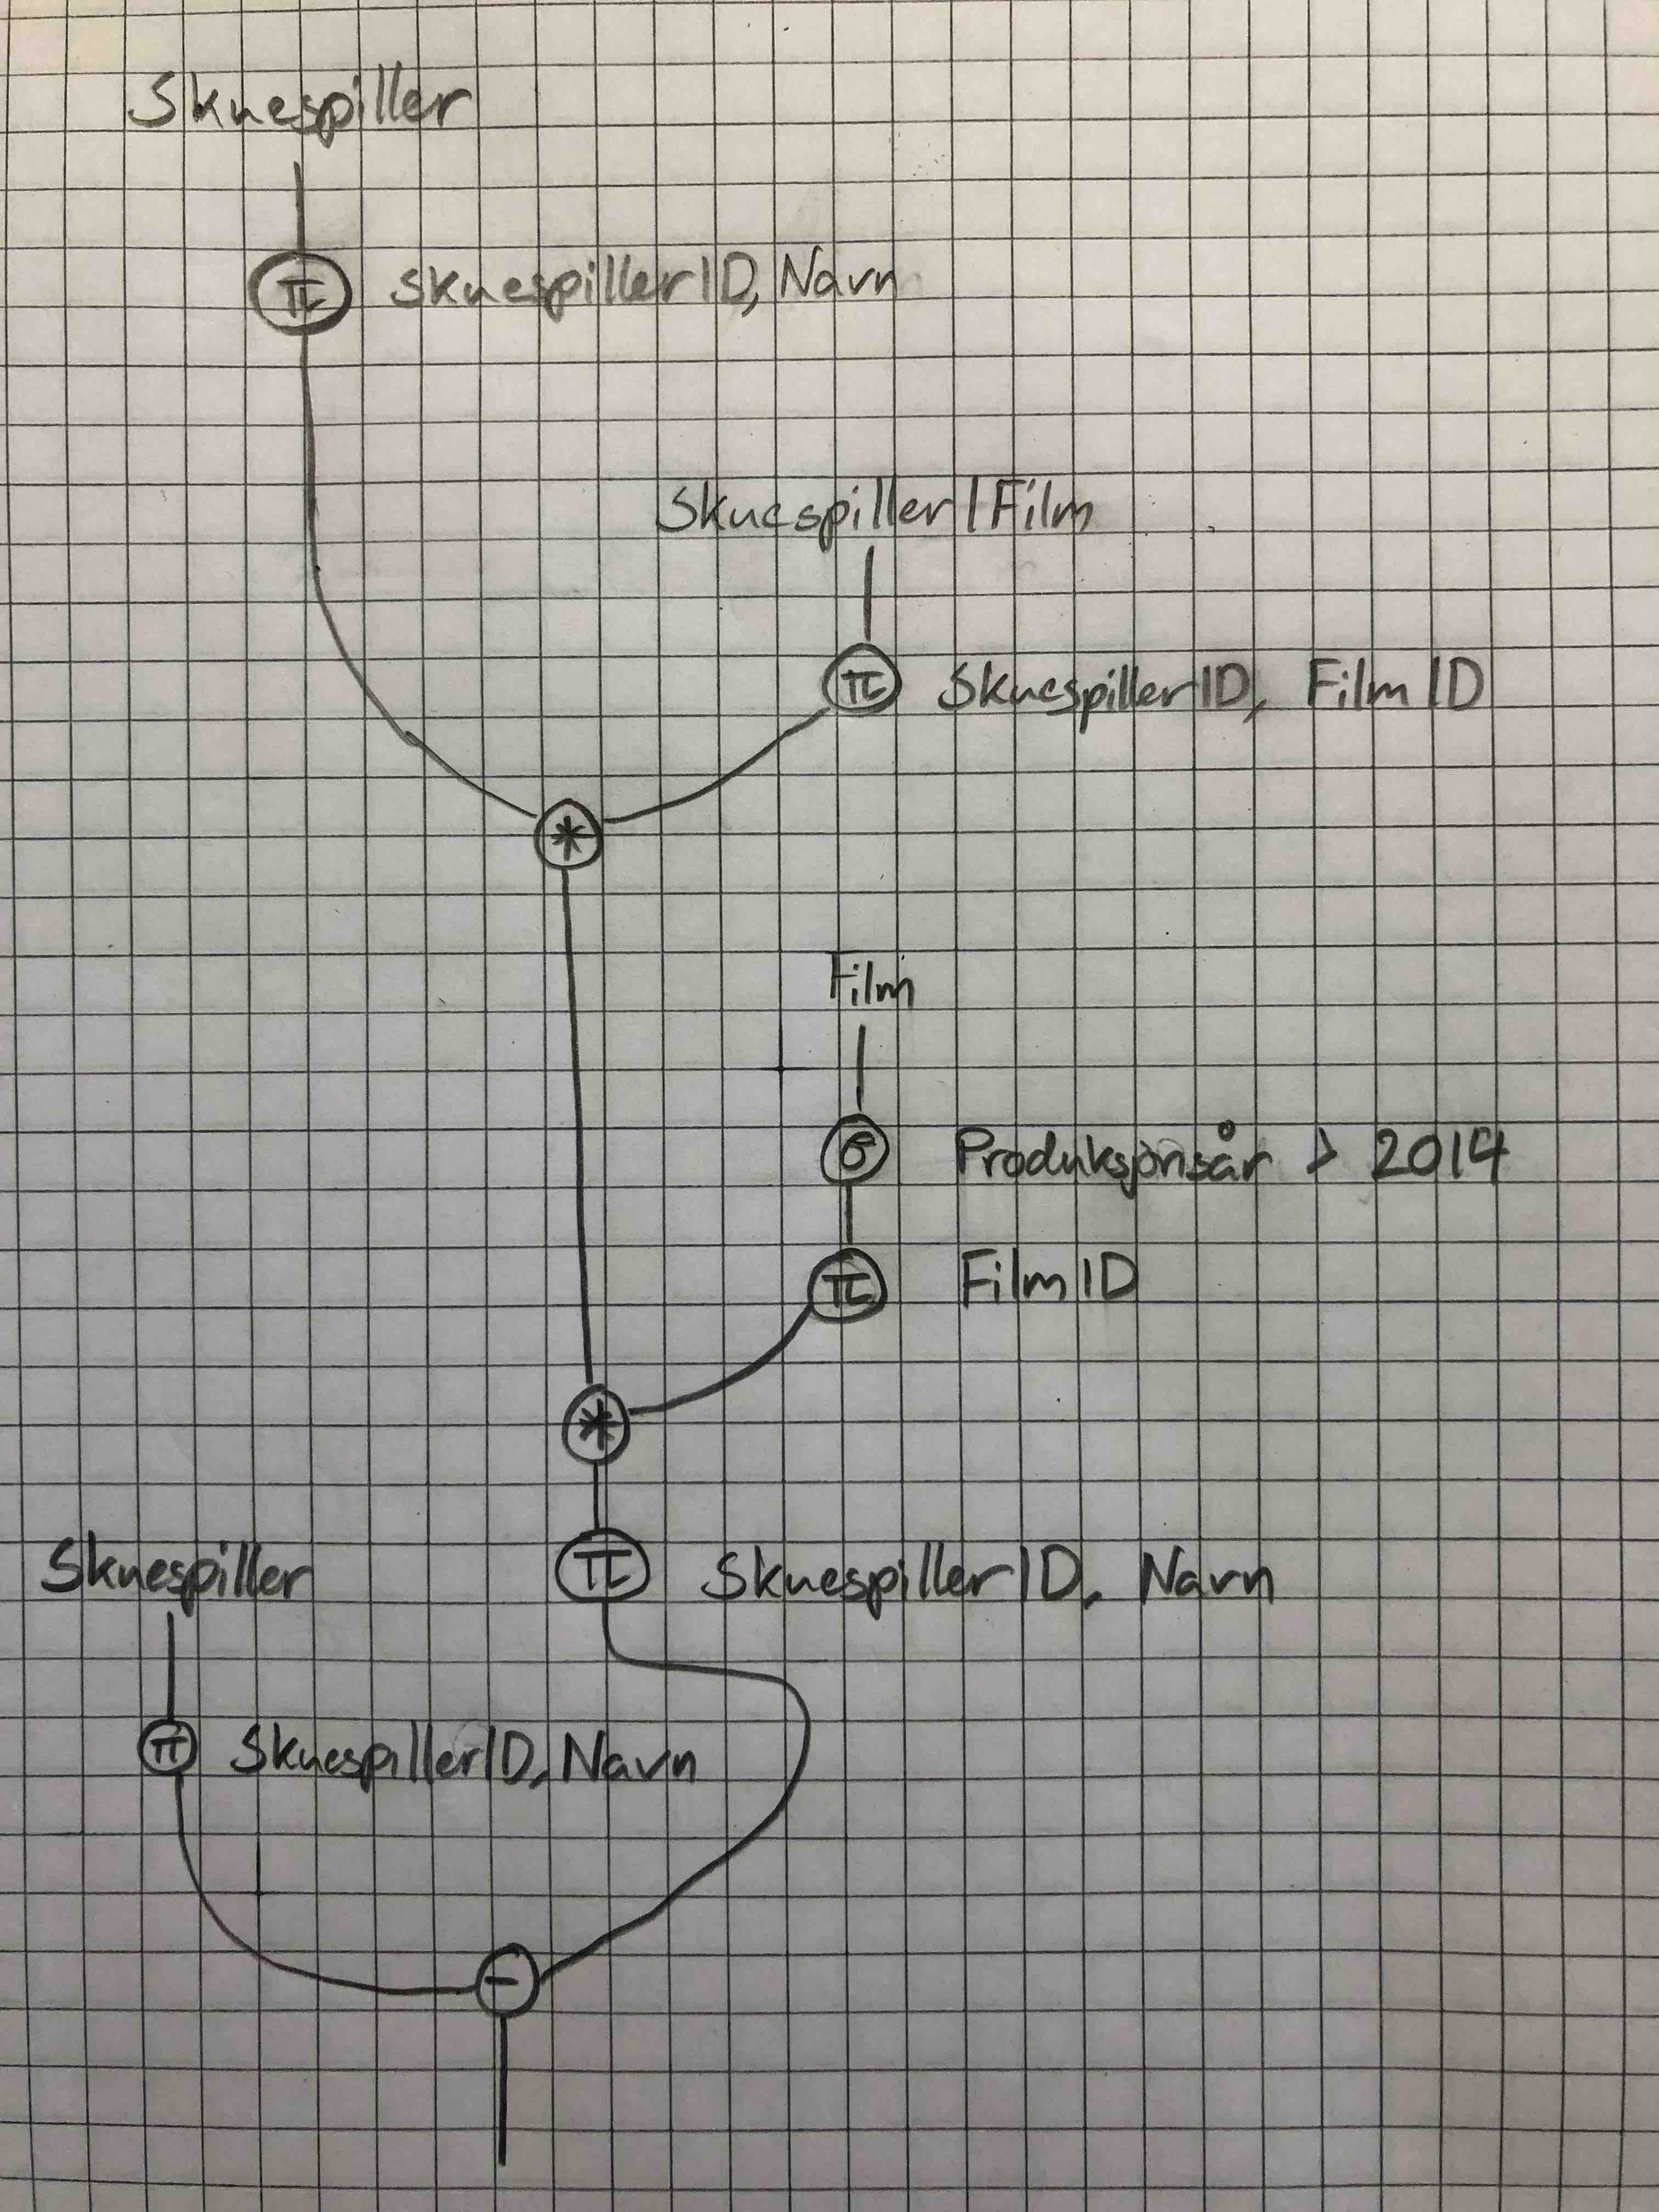 Skuespiller
π SkuespillerID, Navn
SkuespillerIFilm
π SkuespillerID, FilmID
*
Film
σ Produksjonsår > 2014
π FilmID
*
Skuespiller
π SkuespillerID, Navn
π SkuespillerID, Navn
-